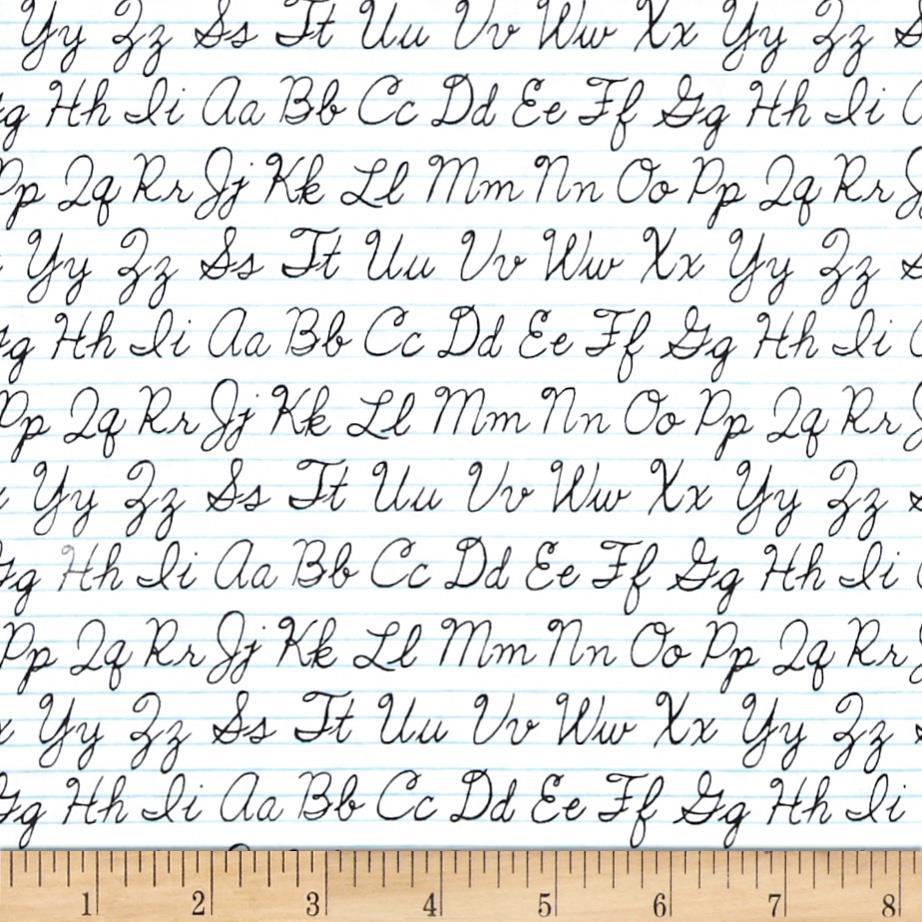 Yy Zz Ss Tt Uu Vv Ww Xx Yy Zz S
g Hh Ii Aa Bb Cc Dd Ee Ff Gg Hh Ii
Pp Qq Rr Jj Kk Ll Mm Nn Oo Pp Qq Rr J
Yy Zz Ss Tt Uu Vv Ww Xx Yy Zz
g Hh Ii Aa Bb Cc Dd Ee Ff Gg Hh Ii
Pp Qq Rr Jj Kk Ll Mm Nn Oo Pp Qq Rr
Yy Zz Ss Tt Uu Vv Ww Xx Yy Zz
Gg Hh Ii Aa Bb Cc Dd Ee Ff Gg Hh Ii
Pp Qq Rr Jj Kk Ll Mm Nn Oo Pp Qq Rr
Yy Zz Ss Tt Uu Vv Ww Xx Yy Zz
Gg Hh Ii Aa Bb Cc Dd Ee Ff Gg Hh Ii
1 2 3 4 5 6 7 8